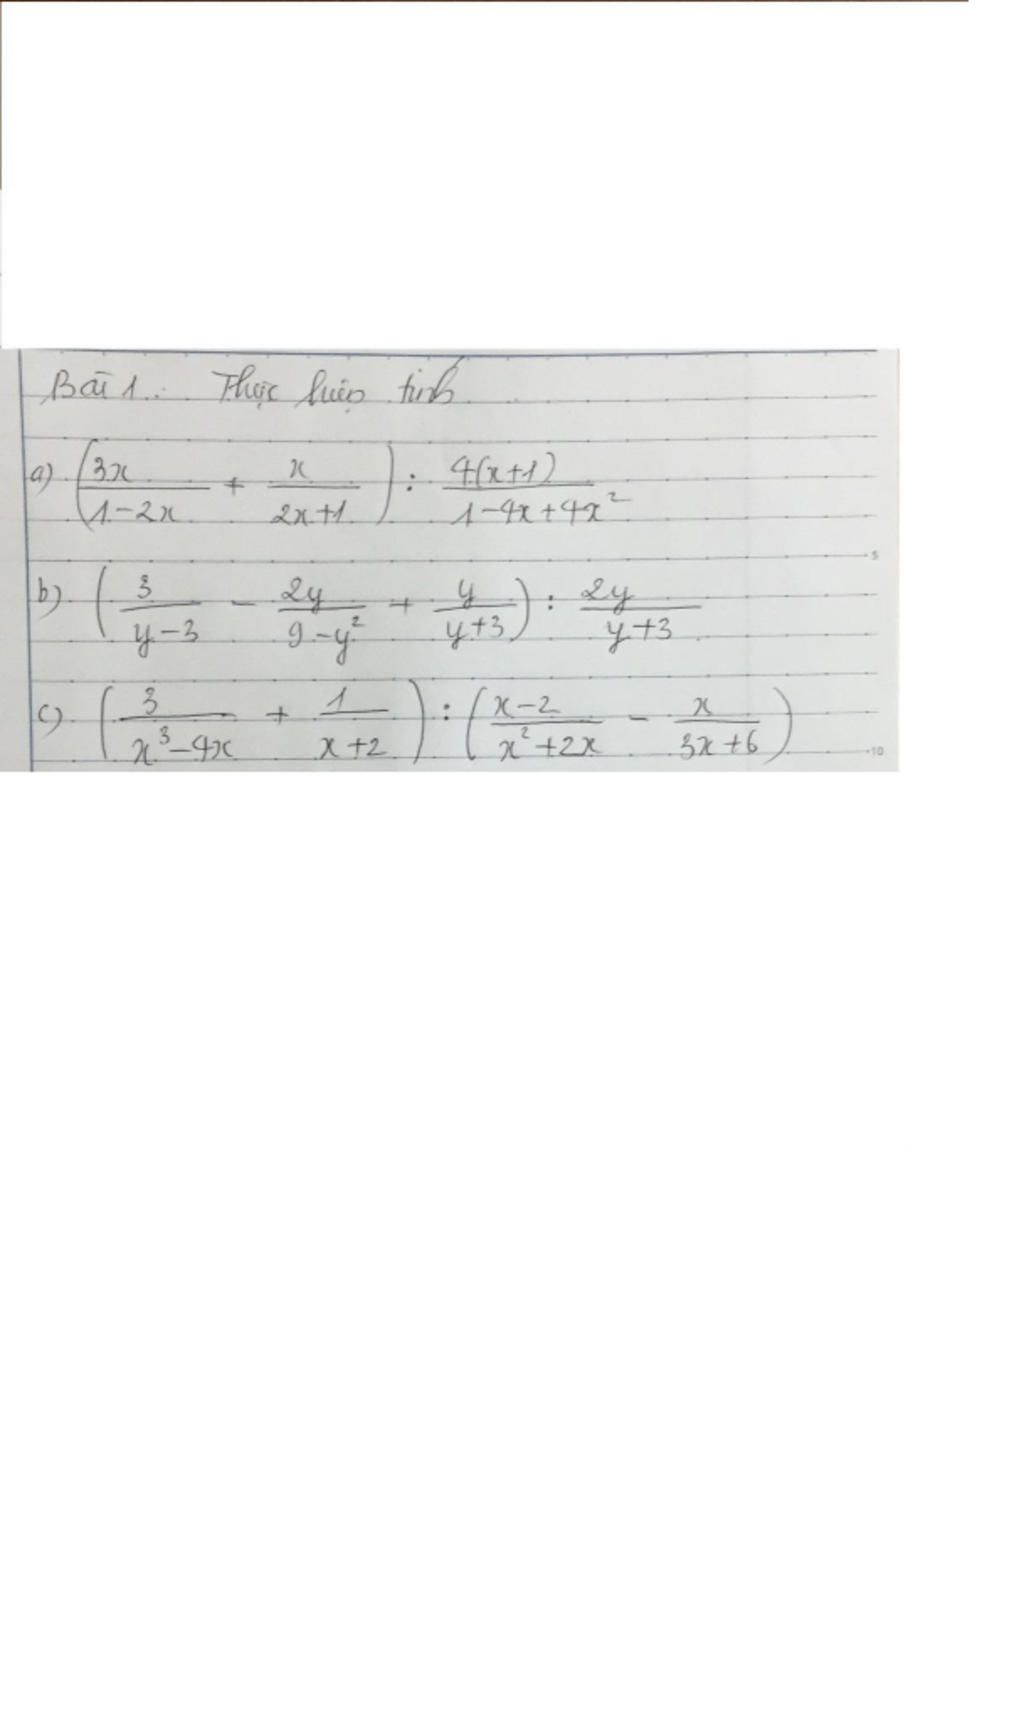 Bài 1: Thực hiện tính
a) (3x/(1-2x) + x/(2x+1)) : 4(x+1)/(1-4x+4x²)
b) (3/(y-3) - 2y/(9-y²) + y/(y+3)) : 2y/(y+3)
c) (3/(x³-4x) + 1/(x+2)) : ((x-2)/(x²+2x) - x/(3x+6))
5
10